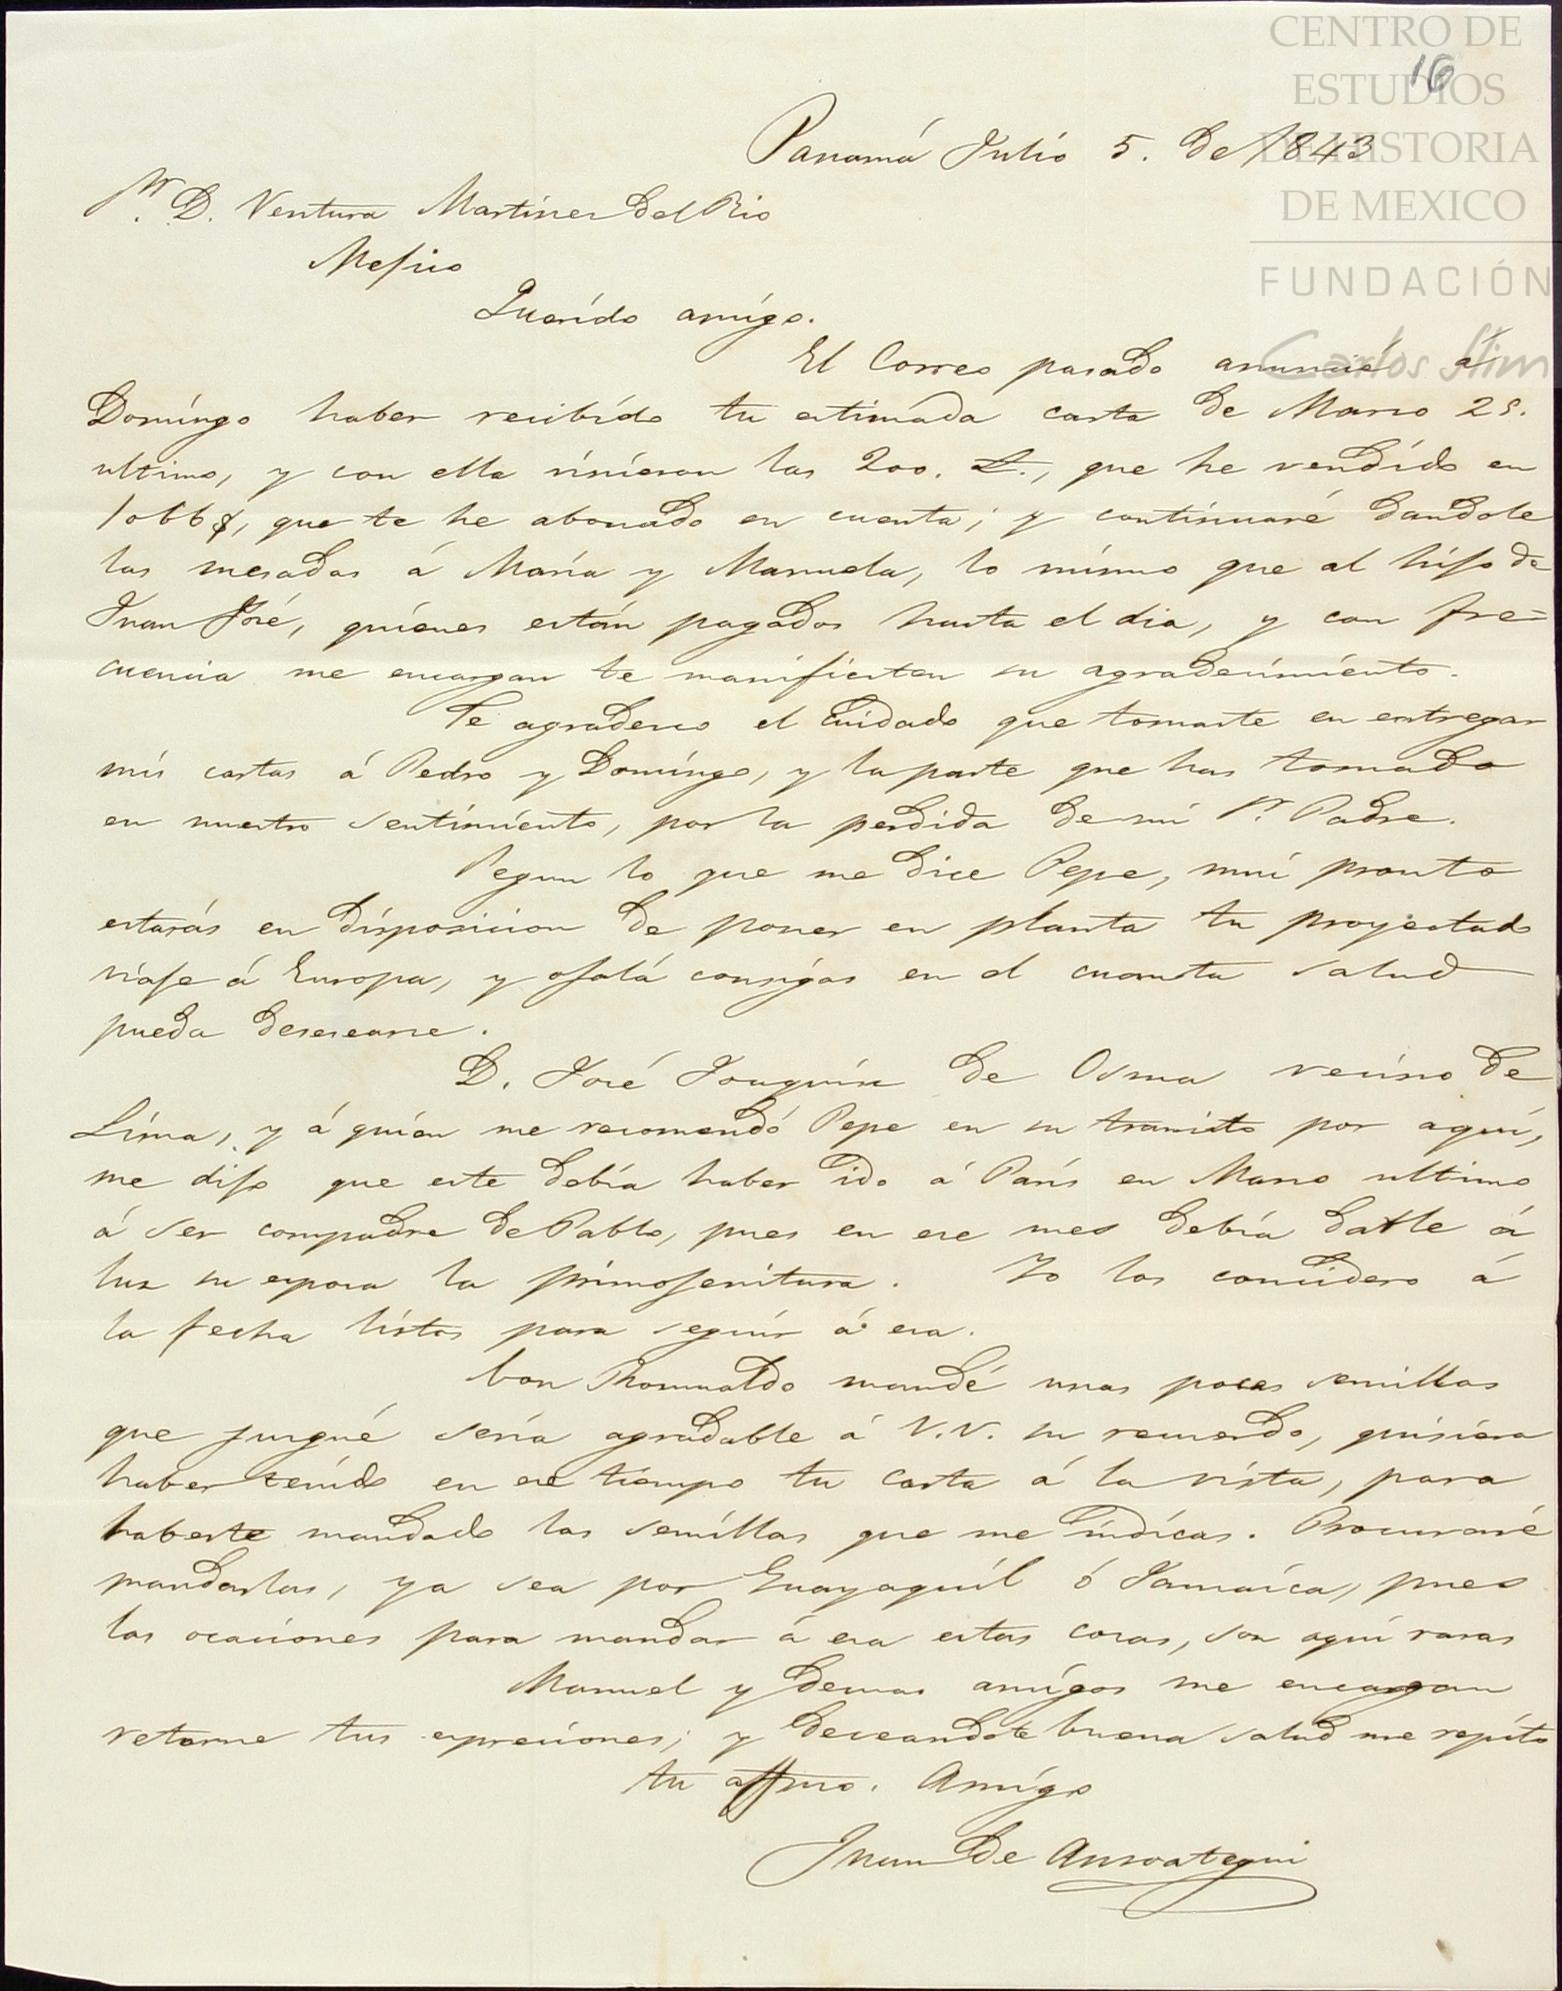 CENTRO DE
ESTUDIOS
DE HISTORIA
DE MEXICO
FUNDACIÓN
Carlos Slim
16
Panamá Julio 5. de 1843
Sr. D. Ventura Martinez del Rio
Mejico
Querido amigo.
El Correo pasado anuncié á
Domíngo haber recibído tu estimada carta de Marzo 25.
ultimo, y con ella viníeron las 200. £., que he vendído en
1066$, que te he abonado en cuenta; y contínuaré dandole
las mesadas á María y Manuela, lo mísmo que al hijo de
Juan José, quíenes están pagados hasta el dia, y con fre=
cuencia me encargan te manifiesten su agradecimíento.
Te agradezco el cuidado que tomaste en entregar
mis cartas á Pedro y Domíngo, y la parte que has tomado
en nuestro sentímíento, por la perdida de mi Sr. Padre.
Segun lo que me dice Pepe, muí pronto
estarás en dísposicion de poner en planta tu proyectado
viaje á Europa, y ojalá consígas en el cuanta salud
pueda desearse.
D. José Joaquín de Osma vecíno de
Líma, y á quíen me recomendó Pepe en su transito por aquí,
me dijo que este debía haber ido á París en Marzo ultimo
á ser compadre de Pablo, pues en ese mes debía darle á
luz su esposa la primojenitura. Yo los concidero á
la fecha lístos para seguír á esa.
Con Romualdo mandé unas pocas semillas
que jusgué sería agradable á V.V. su recuerdo, quisíera
haber tenído en ese tíempo tu carta á la vísta, para
haberte mandado las semíllas que me índícas. Procuraré
mandarlas, ya sea por Guayaquíl ó Jamaíca, pues
las ocaciones para mandar á esa estas cosas, son aquí raras
Manuel y demas amígos me encargan
retorne tus espreciones; y deseandote buena salud me repíto
tu affmo. Amígo
Juan de Ansoategui